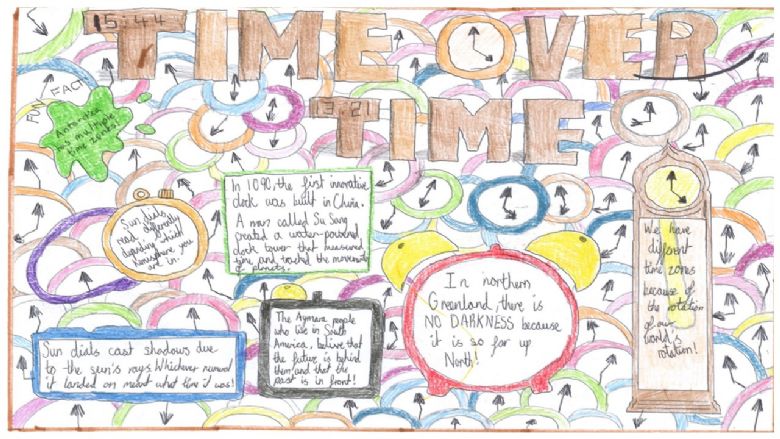 15:44
TIME OVER
13:21
TIME
FUN FACT
Antarctica
has multiple
time zones.
In 1090, the first innovative
clock was built in China.
A man called Su Song
created a water-powered
clock tower that measured
time and tracked the movements
of planets.
Sun dials
read differently
depending which
hemisphere you
are in.
We have
different
time zones
because of
the rotation
of our
world's
rotation!
In northern
Greenland, there is
NO DARKNESS because
it is so far up
North!
The Aymara people
who live in South
America, believe that
the future is behind
them and that the
past is in front!
Sun dials cast shadows due
to the sun's rays. Whichever numeral
it landed on meant what time it was!